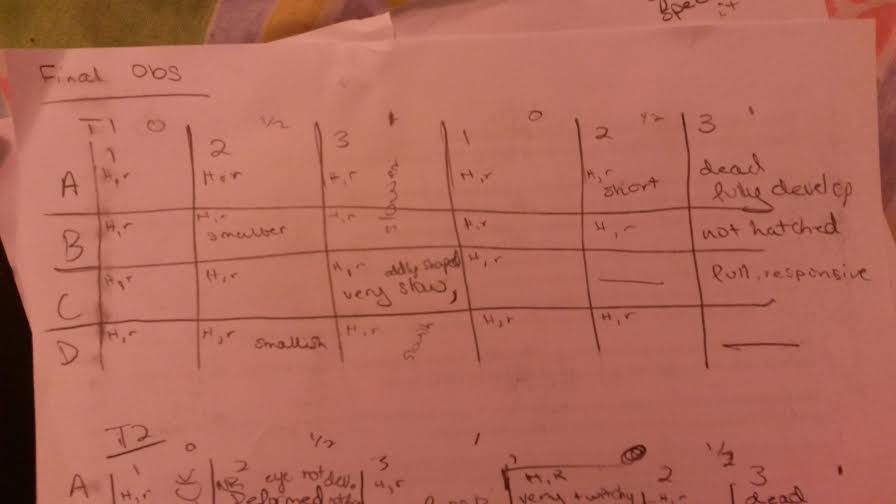 spec
it
Final Obs
T1 0 1/2 1 0 1/2 1
1 2 3 1 2 3
A H,r H,r H,r slower H,r H,r short dead fully develop
B H,r H,r smaller H,r H,r H,r not hatched
C H,r H,r H,r oddly shaped very slow, H,r — full, responsive
D H,r H,r smallish H,r H,r H,r —
T2 0 1/2 1 1/2 1
A 1 H,r 2 eye not dev. Deformed 3 H,r H,R very twitchy 2 H,r 3 dead